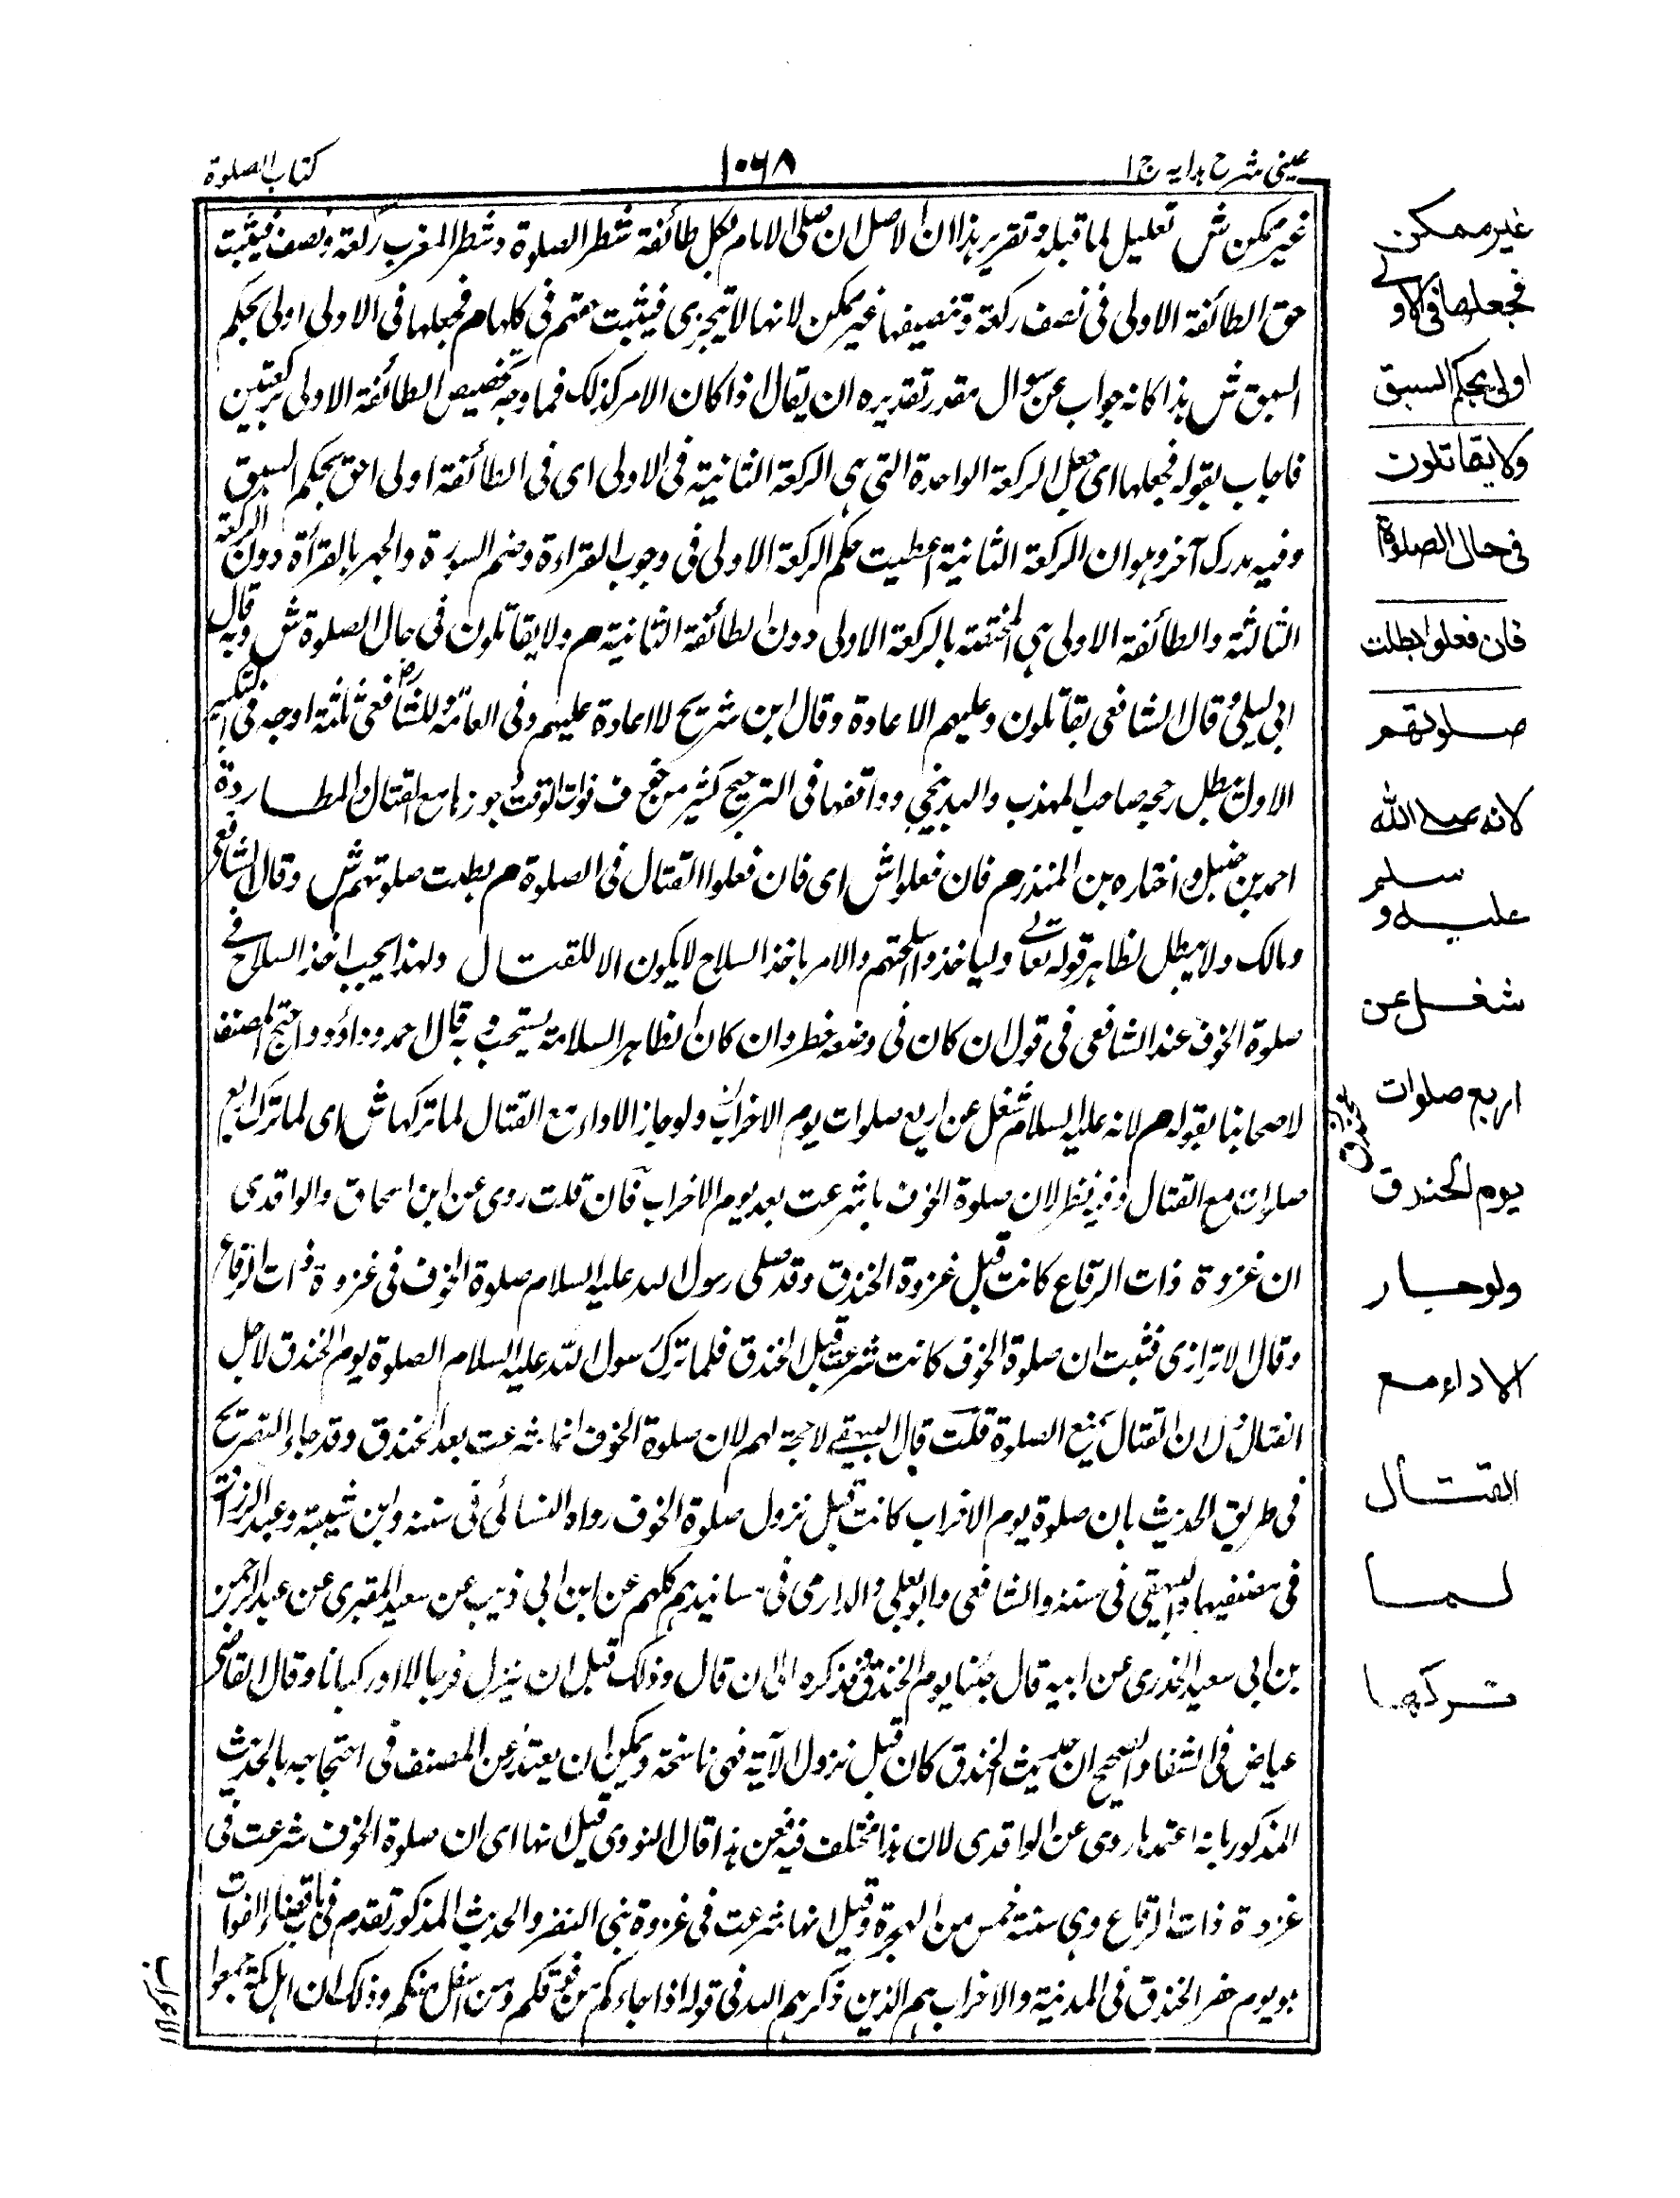 عینی شرح ہدایہ ج ۱
۱۰۶۸
کتاب الصلوة
غیر ممکن ش تعلیل لما قبلہ و تقریر ہذا ان الاصل ان صلی الامام بکل طائفة شطر الصلوة و شطر المغرب رکعة و نصف فیثبت
حق الطائفة الاولی فی نصف رکعة و تنصیفہا غیر ممکن لانہا لا تتجزی فیثبت حقہم فی کلہا م فجعلہا فی الاولی اولی بحکم
السبق ش ہذا کانہ جواب عن سوال مقدر تقدیرہ ان یقال اذا کان الامر کذلک فما وجہ تخصیص الطائفة الاولی برکعتین
فاجاب بقولہ فجعلہا ای جعل الرکعة الواحدة التی ہی الرکعة الثانیة فی الاولی ای فی الطائفة اولی احق بحکم السبق
وفیہ مدرک آخر وہو ان الرکعة الثانیة اعطیت حکم الرکعة الاولی فی وجوب القراءة و ضم السورة والجہر بالقرأة دون الرکعة
الثالثة والطائفة الاولی ہی المختصة بالرکعة الاولی دون الطائفة الثانیة م ولا یقاتلون فی حال الصلوة ش وبہ قال
ابی لیلی و قال الشافعی یقاتلون وعلیہم الاعادة وقال ابن شریح لا اعادة علیہم وفی العامة وللشافعی ثلثة اوجہ فی
الاول یبطل رجحہ صاحب المہذب والبدنیجی ووافقہا فی الترجیح کثیر من فوات الوقت جوزہا مع القتال والمطاردة
احمد بن حنبل واختارہ بن المنذر م فان فعلوا ش ای فان فعلوا القتال فی الصلوة م بطلت صلوتہم ش وقال الشافعی
ومالک ولا یبطل لظاہر قولہ تعالے ولیاخذوا اسلحتہم والامر باخذ السلاح لا یکون الا للقتال ولہذا یجب اخذ السلاح فے
صلوة الخوف عند الشافعی فی قول ان کان فی وضعہ خطر وان کان الظاہر السلامة یستحب وبہ قال احمد و داؤد و احتج المصنف
لاصحابنا بقولہ م لانہ علیہ السلام شغل عن اربع صلوات یوم الاحزاب ولو جاز الاداء مع القتال لما ترکہا ش ای لما ترک اربع
صلوات مع القتال وفیہ نظر لان صلوة الخوف ما شرعت بعد یوم الاحزاب فان قلت روی عن ابن اسحاق والواقدی
ان غزوة ذات الرقاع کانت قبل غزوة الخندق وقد صلی رسول اللہ علیہ السلام صلوة الخوف فی غزوة ذات الرقاع
وقال الاترازی فثبت ان صلوة الخوف کانت شرعت قبل الخندق فلما ترک رسول اللہ علیہ السلام الصلوة یوم الخندق لاجل
القتال دل ان القتال یمنع الصلوة قلت قال البیہقے لا حجة لہم لان صلوة الخوف انما شرعت بعد الخندق وقد جاء التصریح
فی طریق الحدیث بان صلوة یوم الاحزاب کانت قبل نزول صلوة الخوف رواہ النسائی فی سننہ وابن شیبة وعبد الرزاق
فی مصنفیہما والبیہقی فی سننہ والشافعی وابو یعلی والدارمی فی مسانیدہم کلہم عن ابن ابی ذئب عن سعید المقبری عن عبد الرحمن
بن ابی سعید الخدری عن ابیہ قال حبسنا یوم الخندق فذکرہ الی ان قال وذلک قبل ان ینزل فرجالا او رکبانا وقال القاضی
عیاض فی الشفاء والصحیح ان حدیث الخندق کان قبل نزول الآیة فہی ناسخة ویمکن ان یعتذر عن المصنف فی احتجاجہ بالحدیث
المذکور بانہ اعتمد ما روی عن الواقدی لان ہذا مختلف فیہ فعن ہذا قال النووی قیل انہا ای ان صلوة الخوف شرعت فی
غزوة ذات الرقاع وہی سنة خمس من الہجرة وقیل انہا شرعت فی غزوة بنی النضر والحدیث المذکور تقدم فی باب قضاء الفوائت
ہو یوم حفر الخندق فی المدنیة والاحزاب ہم الذین ذکرہم اللہ فی قولہ اذا جاءوکم من فوقکم ومن اسفل منکم وذلک ان اہل مکة جمعوا
غیر ممکن
فجعلها فی الاولے
اولی بحکم السبق
ولا یقاتلون
فی حال الصلوة
فان فعلوا بطلت
صلوتهم
لانه صلے الله
علیه و سلم
شغل عن
اربع صلوات
یوم الخندق
ولو جاز
الاداء مع
القتال
لما
ترکها